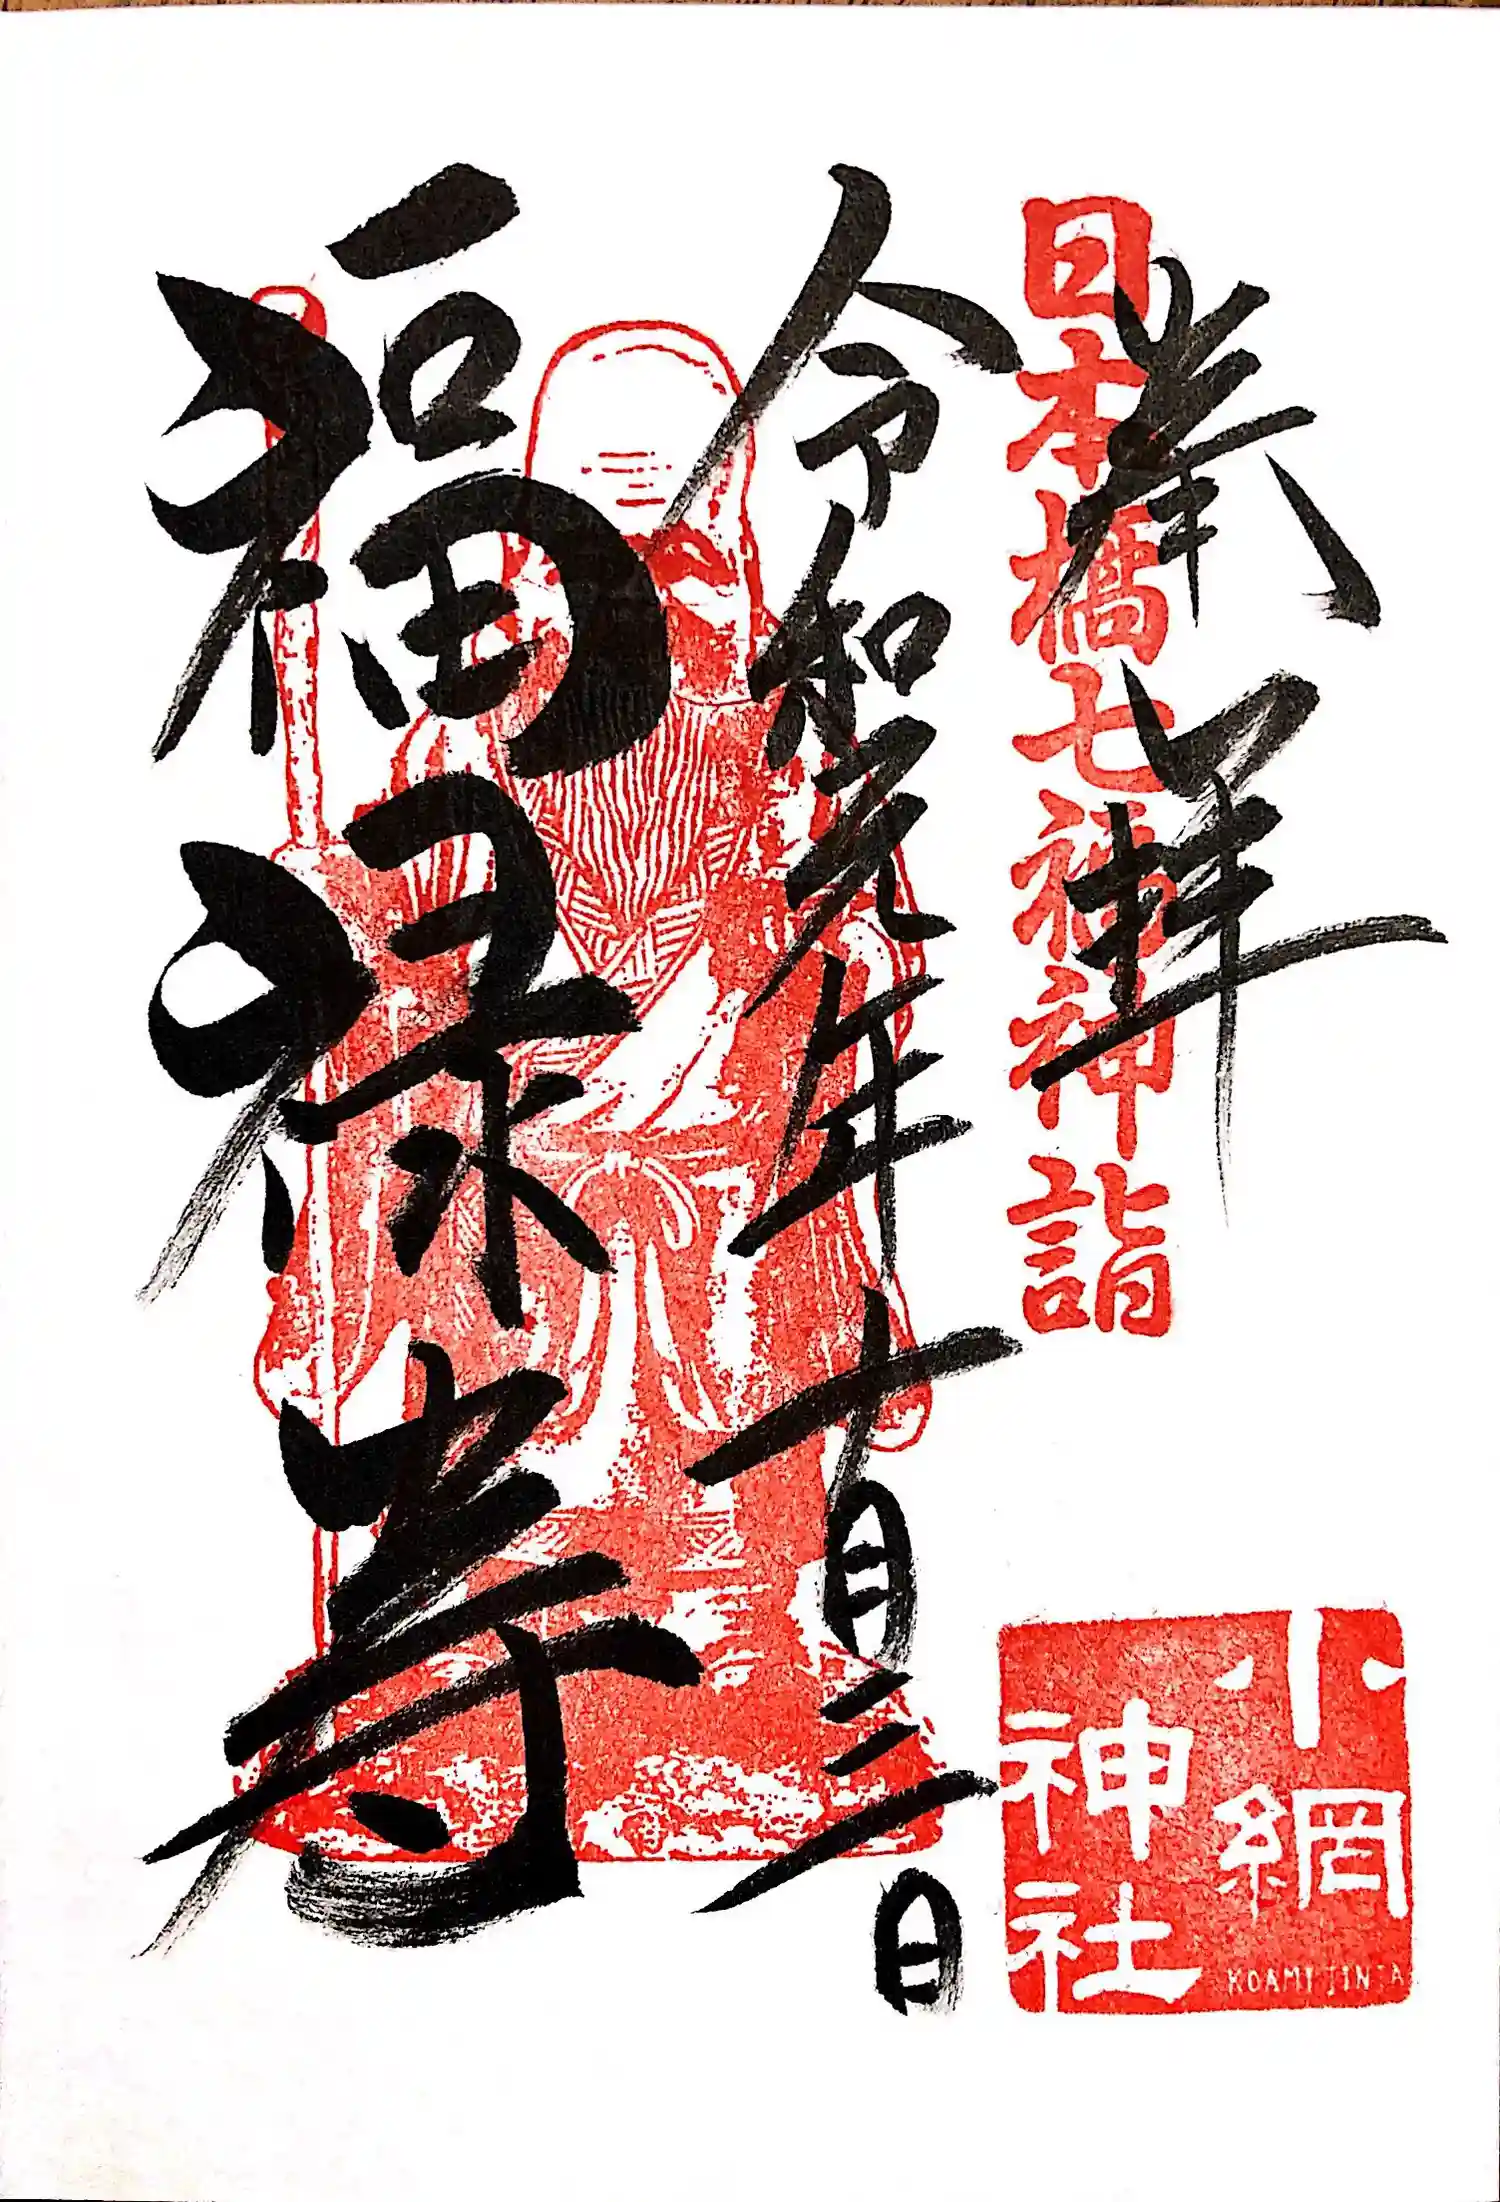 奉拝
日本橋七福神詣
小網
神社
KOAMI JINJA
令和元年十月三日
福禄寿